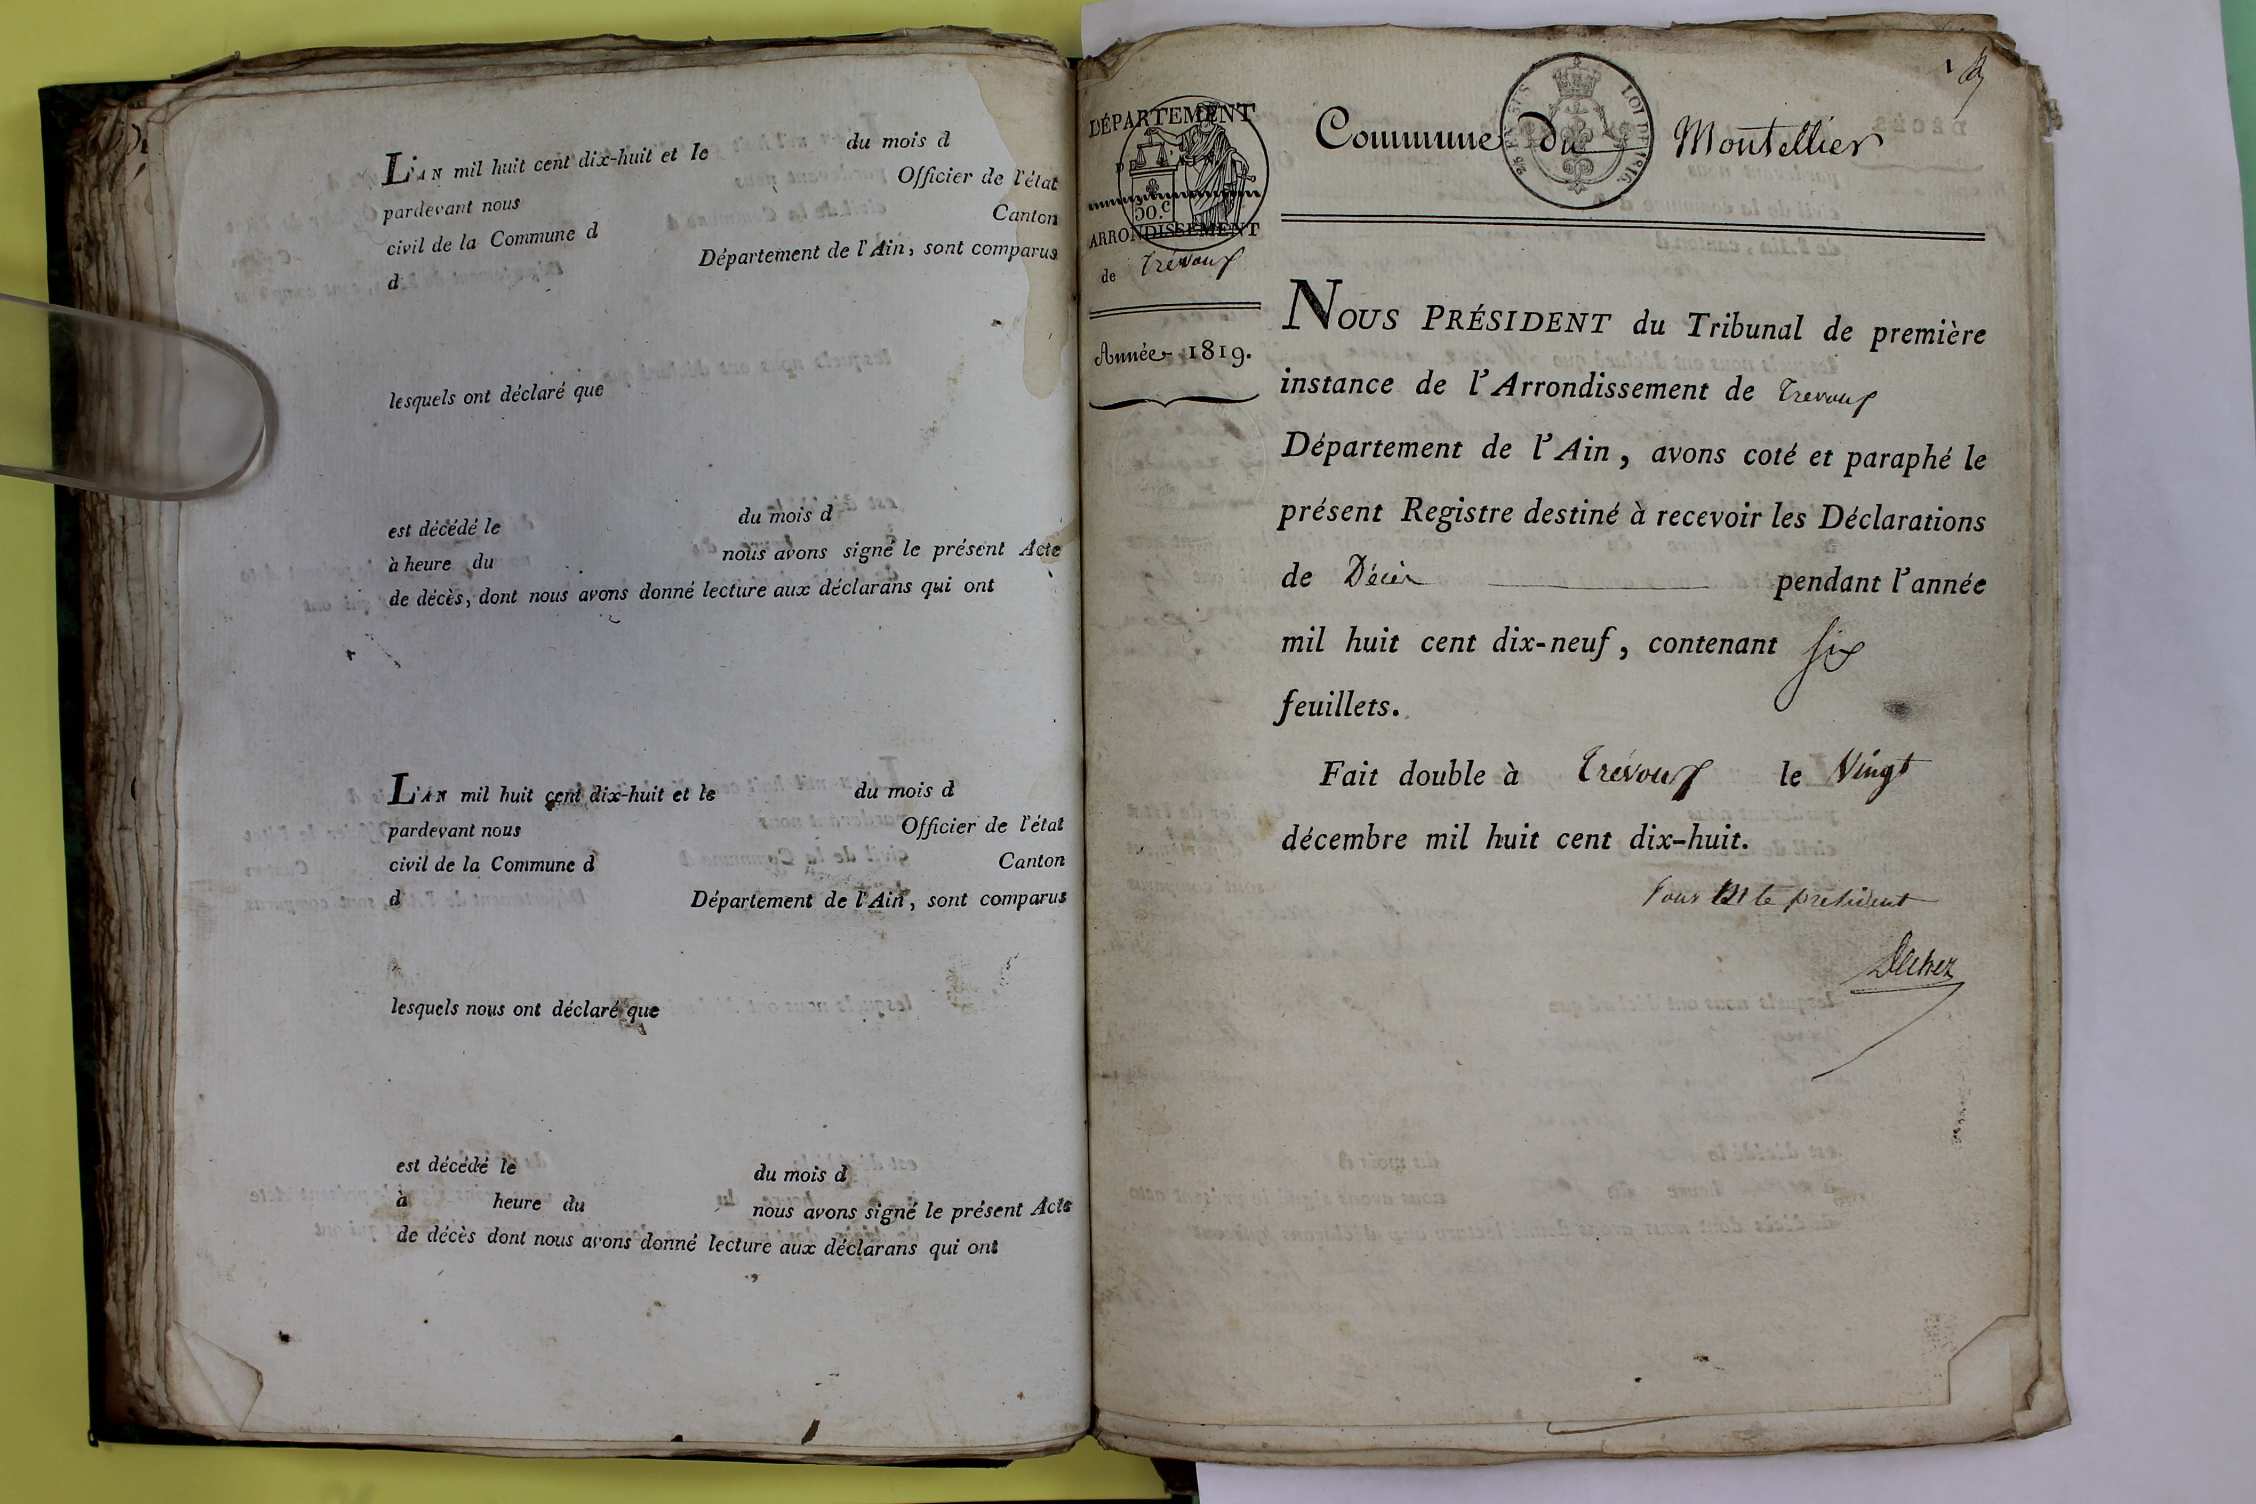 L'AN mil huit cent dix-huit et le du mois d
pardevant nous Officier de l'état
civil de la Commune d Canton
d Département de l'Ain, sont comparus
lesquels ont déclaré que
est décédé le du mois d
à heure du nous avons signé le présent Acte
de décès, dont nous avons donné lecture aux déclarans qui ont
L'AN mil huit cent dix-huit et le du mois d
pardevant nous Officier de l'état
civil de la Commune d Canton
d Département de l'Ain, sont comparus
lesquels nous ont déclaré que
est décédé le du mois d
à heure du nous avons signé le présent Acte
de décès dont nous avons donné lecture aux déclarans qui ont
DÉPARTEMENT
50.c
ARRONDISSEMENT
de Trévoux
Année 1819.
LOI DE 1816
Commune du Montellier
NOUS PRÉSIDENT du Tribunal de première
instance de l'Arrondissement de Trevoux
Département de l'Ain, avons coté et paraphé le
présent Registre destiné à recevoir les Déclarations
de Décès pendant l'année
mil huit cent dix-neuf, contenant six
feuillets.
Fait double à Trévoux le Vingt
décembre mil huit cent dix-huit.
Pour M le président